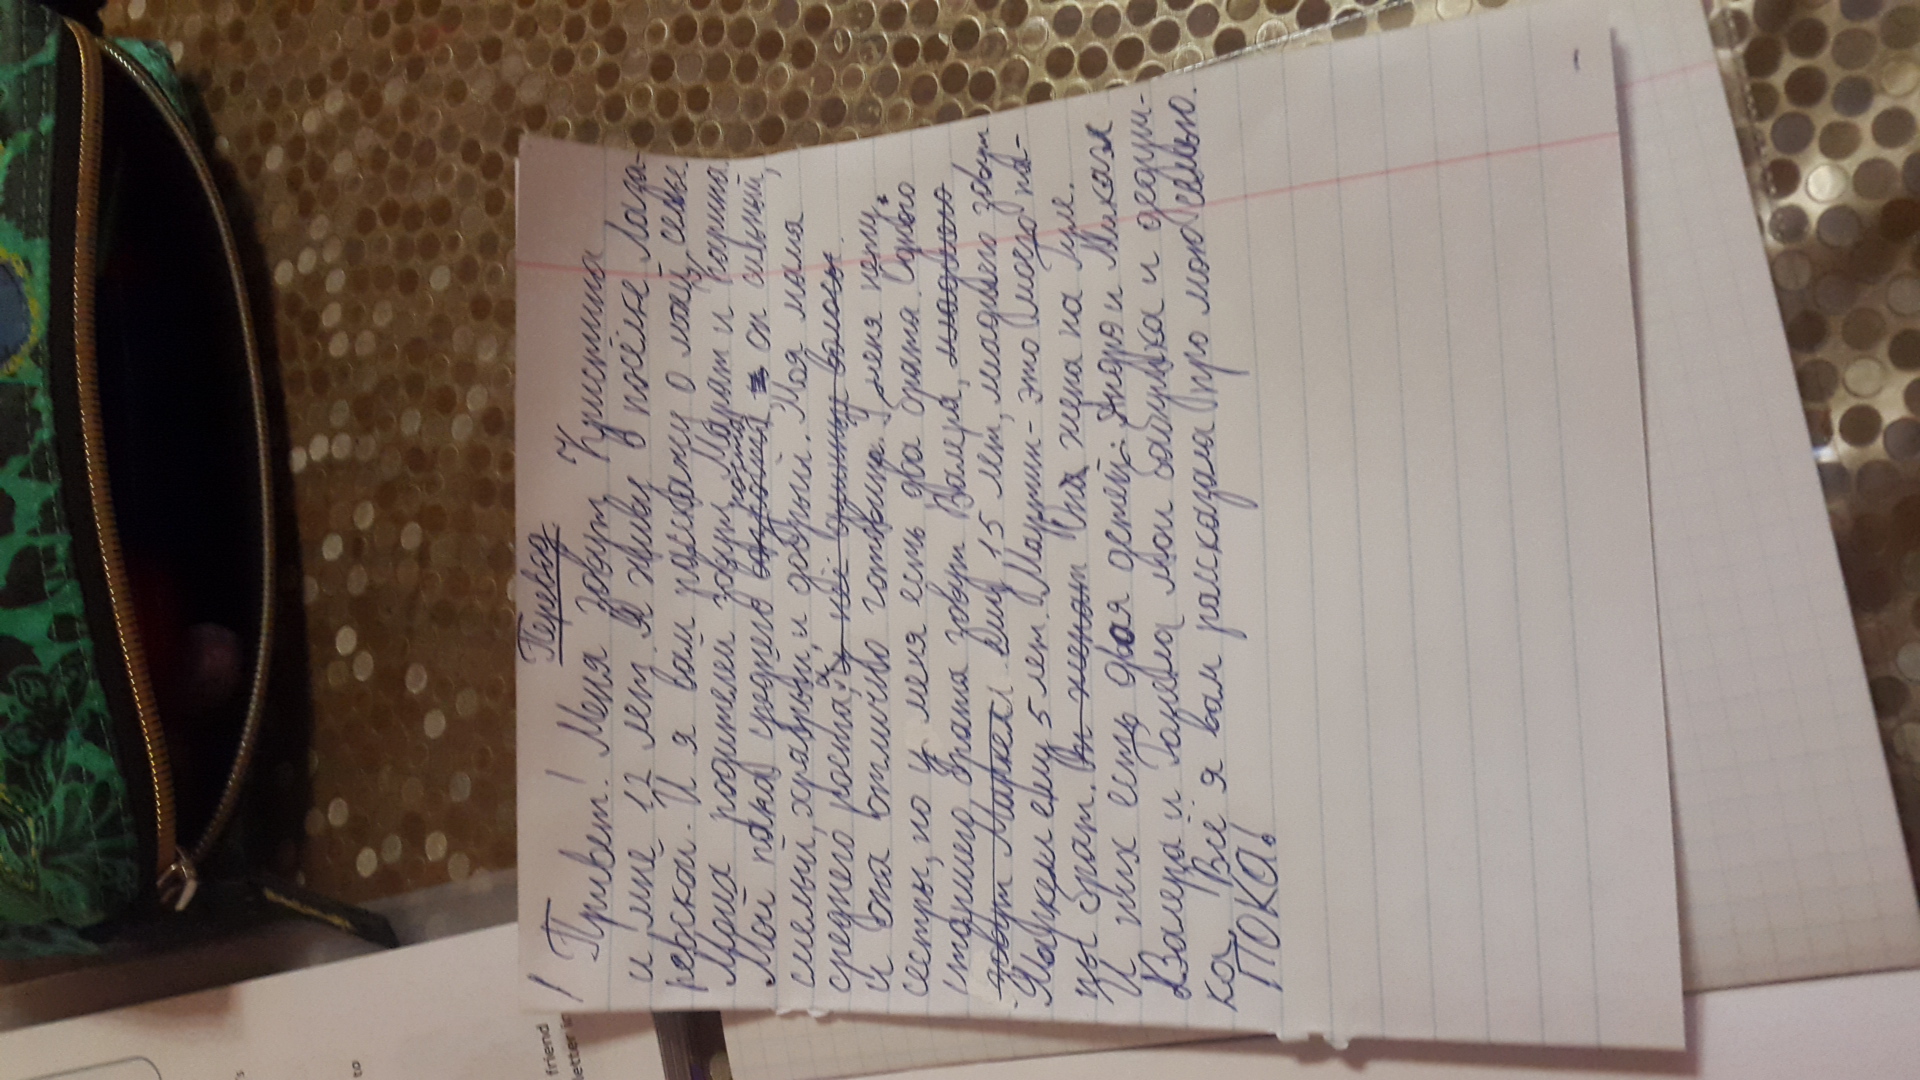 Перевод.
! Привет! Меня зовут Кристина
и мне 12 лет. Я живу в посёлке Лаза-
ревской. И я вам расскажу о моей семье.
Моих родителей зовут Марат и Карина.
Мой папа среднего роста он сильный,
смелый, храбрый, и добрый. Моя мама
среднего роста, и у неё длинные волосы
и она отлично готовит. У меня нету
сестры, но у меня есть два брата. Одного
старшего брата зовут Валера, младшего
зовут Майкел. ему 15 лет, младшего зовут
Майкел ему 5 лет. Мартин - это моего па-
пы брат. Он женат Он жена на Гуле.
И них есть двоя детей: Андре и Микаэл
Валера и Голева мои бабушка и дедуш-
ка, Всё я вам рассказала про мою семью.
ПОКА!
friend
letter in
to